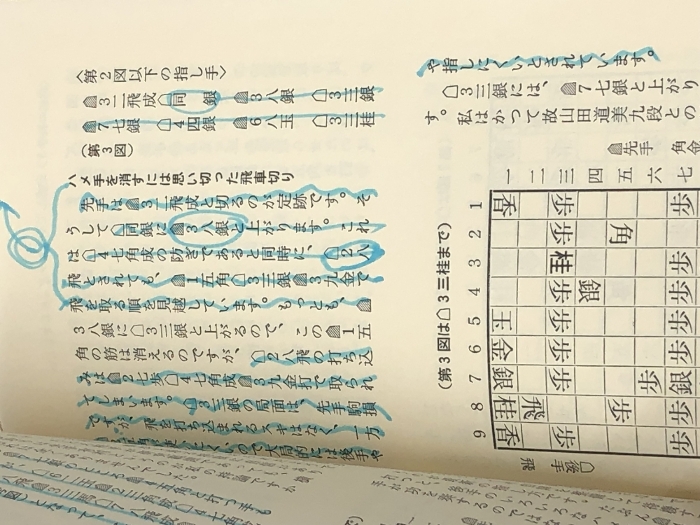 〈第２図以下の指し手〉
▲３二飛成△同　銀　▲３八銀　△３三銀
▲７七銀　△４四銀　▲６八玉　△３三桂
〈第３図〉
ハメ手を消すには思い切った飛車切り
先手は▲３二飛成と切るのが定跡です。そ
うして△同銀に▲３八銀と上がります。これ
は△４七角成の防ぎであると同時に、△２八
飛とされても、▲１五角△３三銀▲３九金で
飛を取る順を見越しています。もっとも、▲
３八銀に△３三銀と上がるので、この▲１五
角の筋は消えるのですが、△２八飛の打ち込
みは▲２七歩△４七角成▲３九金打で取られ
てしまいます。△３三銀の局面は、先手駒損
ですが飛を打ち込まれるスキはなく、一方
にくいので大局的には後手や
や指しにくいとされています。
△３三銀には、▲７七銀と上がりま
す。私はかつて故山田道美九段との
(第３図は△３三桂まで)
▲先手　角金
一二三四五六七
1 香 歩 歩
2 歩 角 歩
3 歩 桂 歩
4 歩 銀 歩
5 玉 歩 歩
6 金 歩 歩
7 銀 歩 歩 銀
8 桂 飛 歩
9 香 歩 歩
△後手　飛